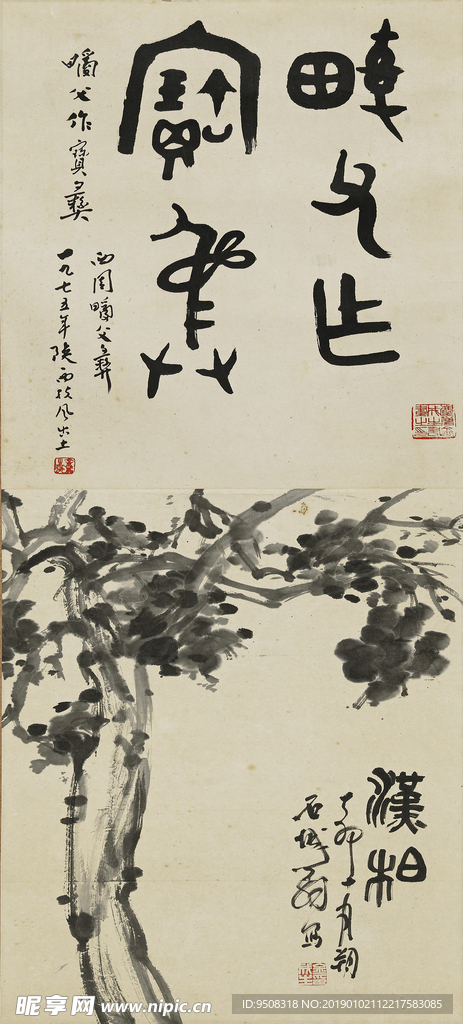 父作
寶彝
父作寶彝
西周父彝
一九七五年陕西扶风出土
漢柏
丁卯十月朔
石城
昵享网 www.nipic.cn
ID:9508318 NO:20190102112217583085